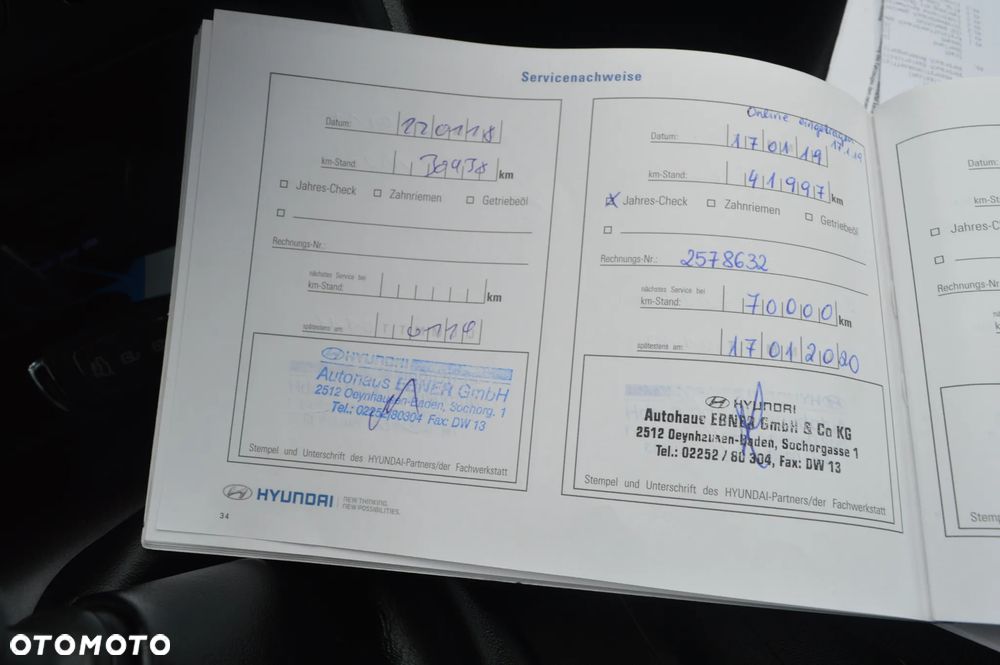 Servicenachweise
Datum:
km-Stand: km
Jahres-Check Zahnriemen Getriebeöl
Rechnungs-Nr.:
nächstes Service bei
km-Stand: km
spätestens am:
HYUNDAI
Autohaus EBNER GmbH
2512 Oeynhausen-Baden, Sochorg. 1
Tel.: 02252/80304 Fax: DW 13
Stempel und Unterschrift des HYUNDAI-Partners/der Fachwerkstatt
HYUNDAI NEW THINKING.
NEW POSSIBILITIES.
34
Online eingetragen
17.1.19
Datum: 170119
km-Stand: 41997 km
Jahres-Check Zahnriemen Getriebeöl
Rechnungs-Nr.: 2578632
nächstes Service bei
km-Stand: 70000 km
spätestens am: 17012020
HYUNDAI
Autohaus EBNER GmbH & Co KG
2512 Oeynhausen-Baden, Sochorgasse 1
Tel.: 02252 / 80 304, Fax: DW 13
Stempel und Unterschrift des HYUNDAI-Partners/der Fachwerkstatt
Datum:
km-St
Jahres-C
Rechnungs-Nr
Stemp
OTOMOTO